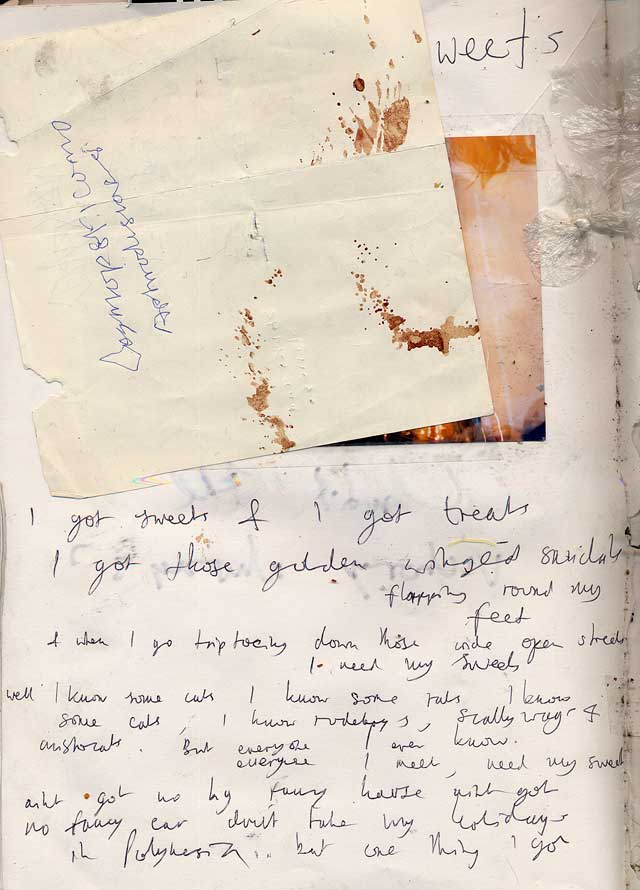 weets
I got sweets & I got treats
I got those golden winged sandals
flapping round my
feet
& when I go triptoeing down those wide open streets
I need my sweets
well I know some cats I know some rats I know
some cats, I know rudeboys, scallywags &
aristocats. But everyone I ever know.
everyone I meet, need my sweet
aint got no big fancy house aint got
no fancy car dont take my holidays
in Polynesia.. but one thing I got